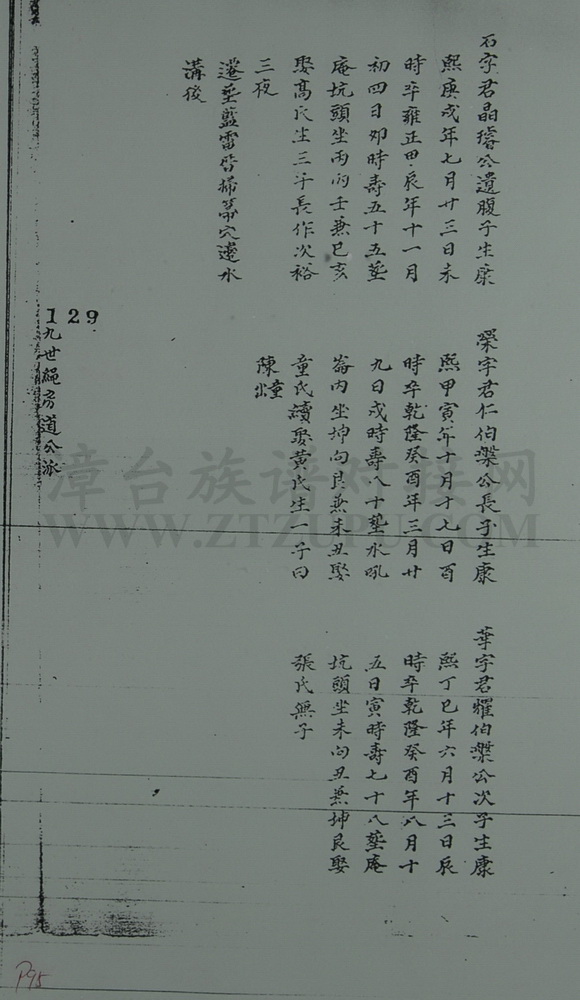 石字君晶璿公遺腹子生康
熙庚戌年七月廿三日未
時卒雍正甲辰年十一月
初四日卯時壽五十五塟
庵坑頭坐丙向壬兼巳亥
娶高氏生三子長作次裕
三夜
遷塟藍雷岽掃箒穴邊水
溝後
榮字君仁伯槃公長子生康
熙甲寅年十月十七日酉
時卒乾隆癸酉年三月廿
九日戌時壽八十塟水吼
崙內坐坤向艮兼未丑娶
童氏續娶黃氏生一子曰
陳
華字君耀伯槃公次子生康
熙丁巳年六月十三日辰
時卒乾隆癸酉年八月十
五日寅時壽七十八塟庵
坑頭坐未向丑兼坤艮娶
張氏無子
129
九世繩房道公派
P95
漳台族谱对接网
WWW.ZTZUPU.COM